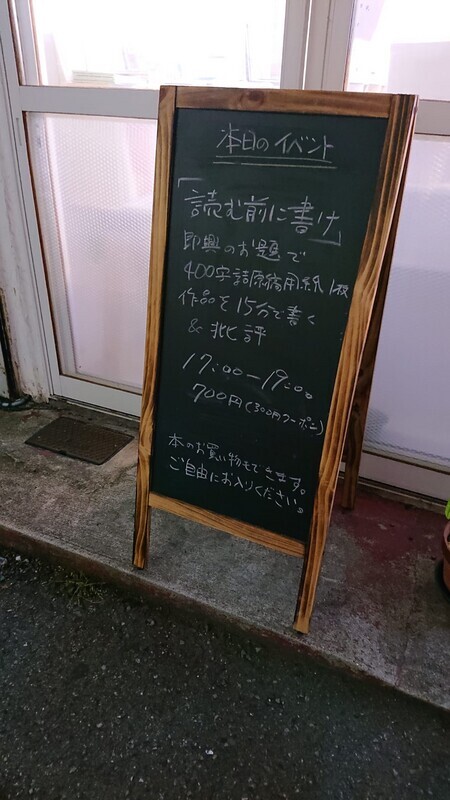 本日のイベント
「読む前に書け」
即興のお題で
400字詰原稿用紙1枚
作品を15分で書く
& 批評
17:00-19:00
700円(300円クーポン)
本のお買い物もできます。
ご自由にお入りください。